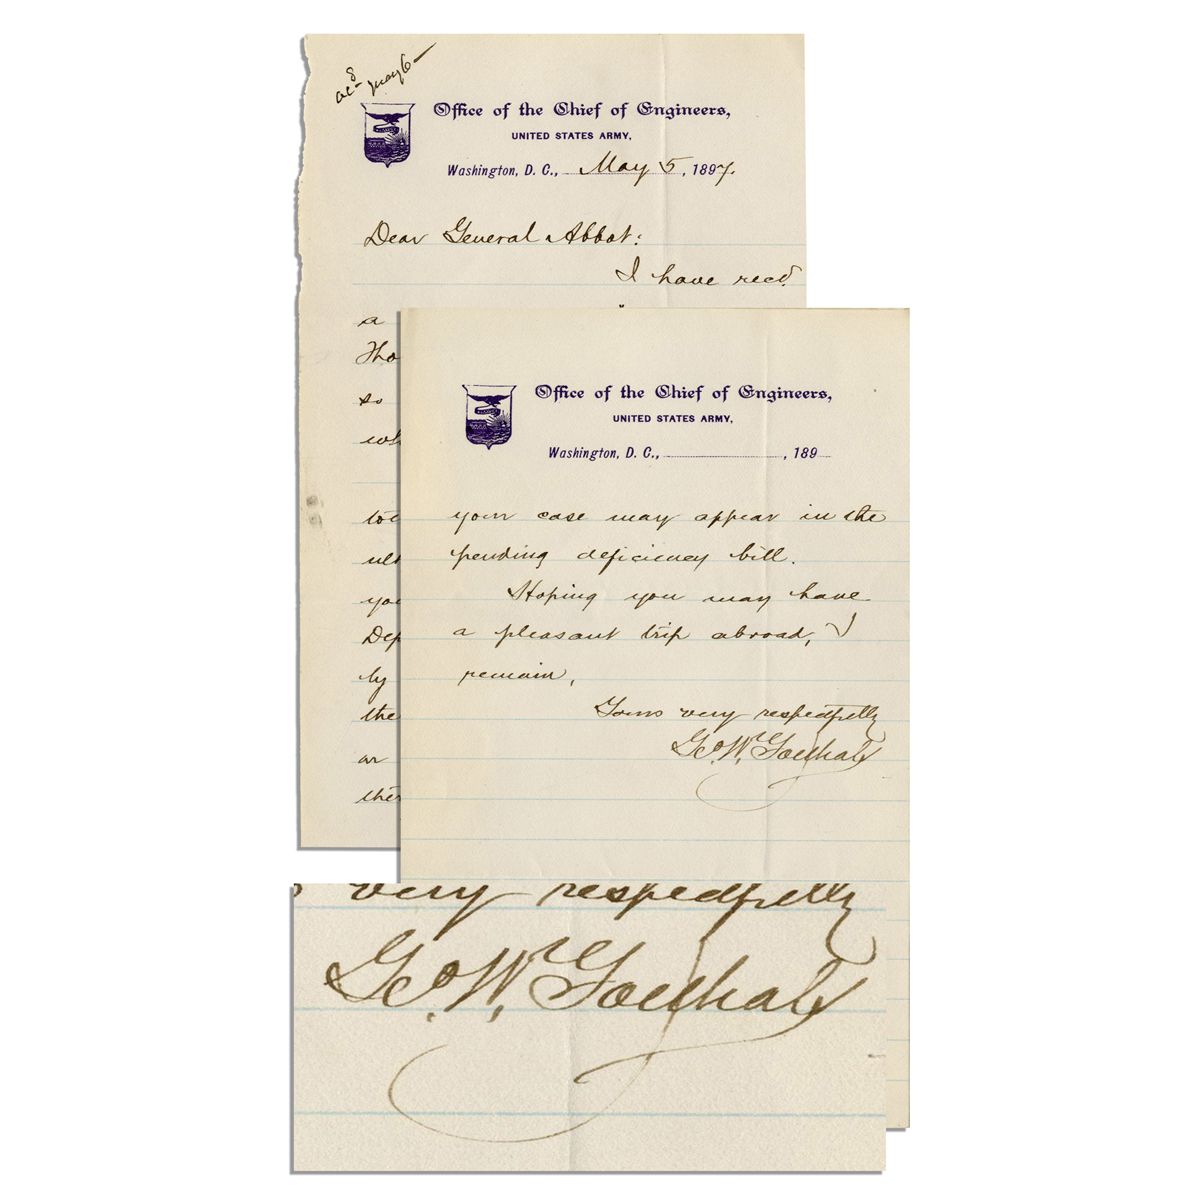 ac^8 May 6 —
Office of the Chief of Engineers,
UNITED STATES ARMY,
Washington, D. C., May 5, 1897.
Dear General Abbot:
I have recd.
a
Tho
so
wh
ult
you
Dep
by
the
or
ther
Office of the Chief of Engineers,
UNITED STATES ARMY,
Washington, D. C., , 189
your case may appear in the
pending deficiency bill.
Hoping you may have
a pleasant trip abroad, I
remain,
Yours very respectfully
Geo. W. Goethals
very respectfully
Geo. W. Goethals